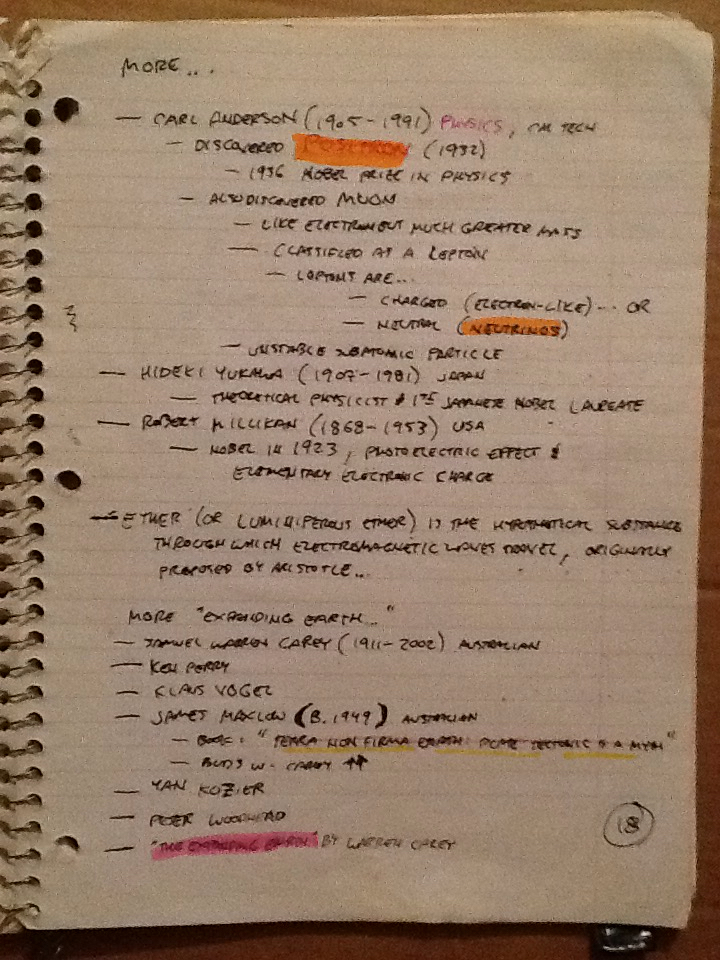 MORE...
— CARL ANDERSON (1905-1991) PHYSICS, CAL TECH
— DISCOVERED POSITRON (1932)
— 1936 NOBEL PRIZE IN PHYSICS
— ALSO DISCOVERED MUON
— LIKE ELECTRON BUT MUCH GREATER MASS
— CLASSIFIED AS A LEPTON
— LEPTONS ARE...
— CHARGED (ELECTRON-LIKE)... OR
— NEUTRAL (NEUTRINOS)
— UNSTABLE SUBATOMIC PARTICLE
— HIDEKI YUKAWA (1907-1981) JAPAN
— THEORETICAL PHYSICIST & 1ST JAPANESE NOBEL LAUREATE
— ROBERT MILLIKAN (1868-1953) USA
— NOBEL IN 1923, PHOTOELECTRIC EFFECT &
ELEMENTARY ELECTRONIC CHARGE
— ETHER (OR LUMINIFEROUS ETHER) IS THE HYPOTHETICAL SUBSTANCE
THROUGH WHICH ELECTROMAGNETIC WAVES TRAVEL, ORIGINALLY
PROPOSED BY ARISTOTLE...
MORE "EXPANDING EARTH..."
— SAMUEL WARREN CAREY (1911-2002) AUSTRALIAN
— KEN PERRY
— KLAUS VOGEL
— JAMES MAXLOW (B. 1949) AUSTRALIAN
— BOOK: "TERRA NON FIRMA EARTH: PLATE TECTONICS IS A MYTH"
— BUDS W- CAREY ↑↑
— YAN KOZIER
— PETER WOODHEAD
— "THE EXPANDING EARTH" BY WARREN CAREY
18